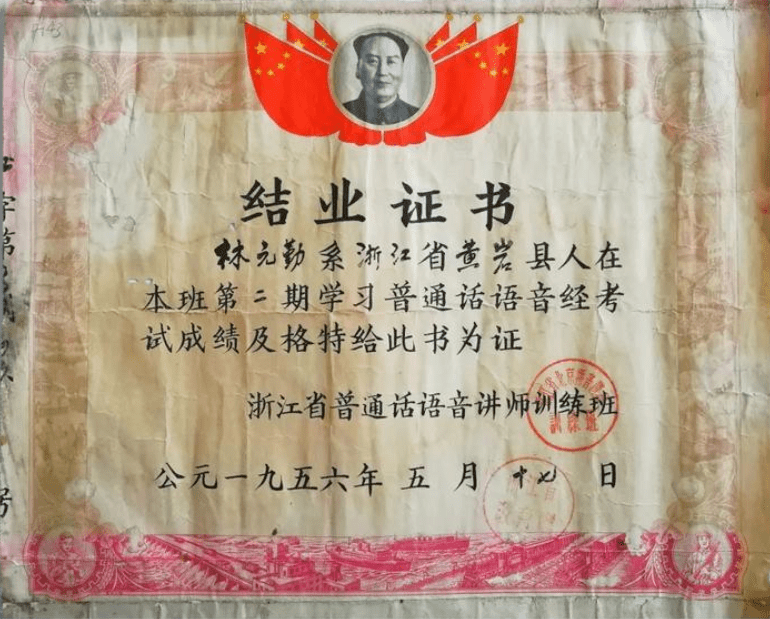 结业证书
林元勤系浙江省黄岩县人在
本班第二期学习普通话语音经考
试成绩及格特给此书为证
浙江省普通话语音讲师训练班
公元一九五六年五月十七日
字第
号